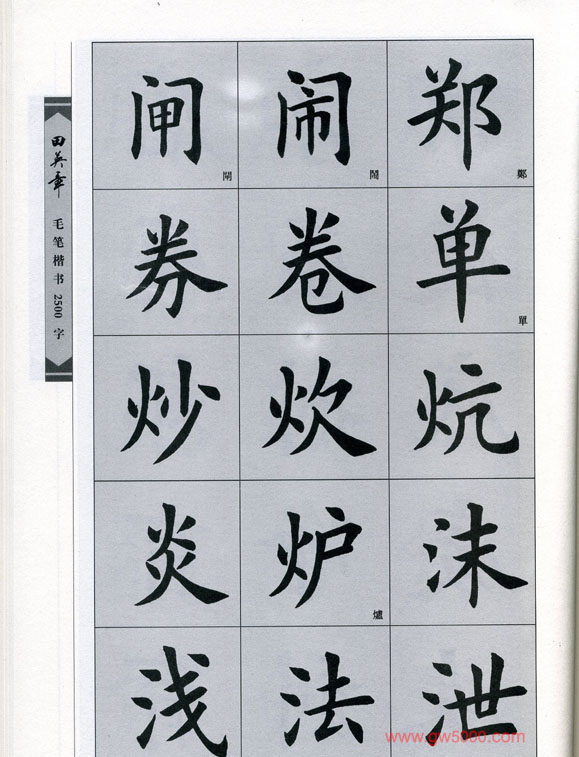 田英章 毛笔楷书 2500 字
闸 閘 闹 鬧 郑 鄭
券 卷 单 單
炒 炊 炕
炎 炉 爐 沫
浅 法 泄
www.gw5000.com